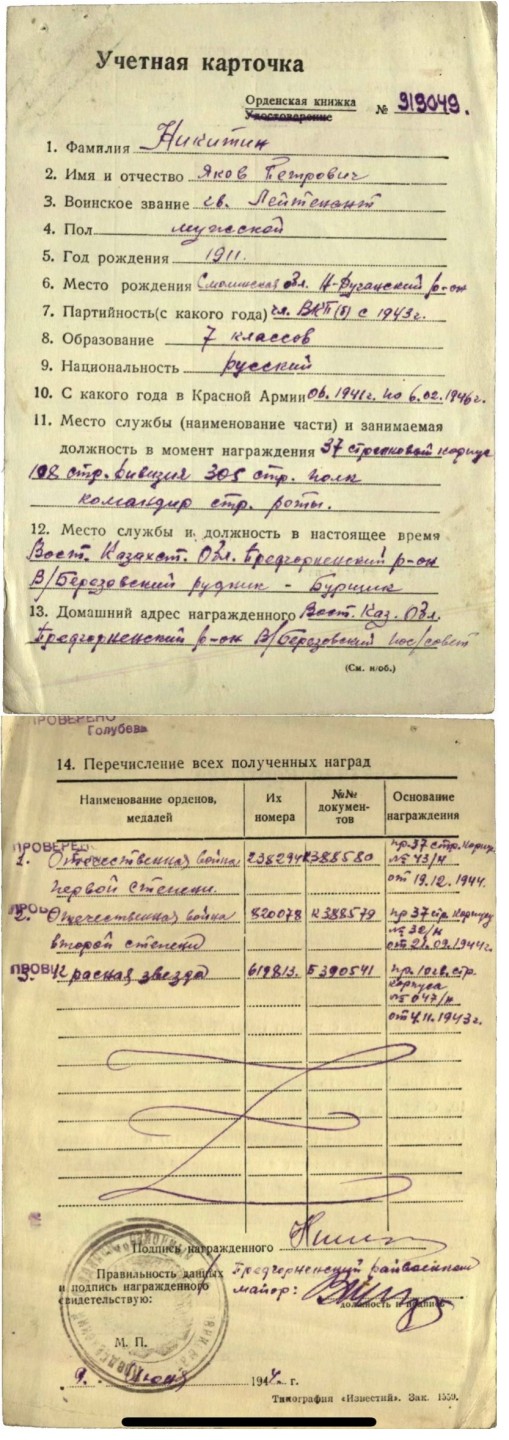 Учетная карточка
Орденская книжка
Удостоверение
№ 919049.
1. Фамилия Никитин
2. Имя и отчество Яков Петрович
3. Воинское звание гв. Лейтенант
4. Пол мужской
5. Год рождения 1911.
6. Место рождения Смоленская обл. Н-Дугинский р-он
7. Партийность(с какого года) чл. ВКП(б) с 1943г.
8. Образование 7 классов
9. Национальность русский
10. С какого года в Красной Армии 06.1941г. по 6.02.1946г.
11. Место службы (наименование части) и занимаемая
должность в момент награждения 37 стрелковый корпус
108 стр. дивизия 305 стр. полк
командир стр. роты.
12. Место службы и должность в настоящее время
Вост. Казахст. Обл. Предгорненский р-он
В/Березовский рудник - Бурщик
13. Домашний адрес награжденного Вост. Каз. Обл.
Предгорненский р-он В/Березовский пос/совет
(См. н/об.)
ПРОВЕРЕНО
Голубева
14. Перечисление всех полученных наград
Наименование орденов, медалей
Их номера
№№ документов
Основание награждения
ПРОВЕРЕ
1. Отечественная война первой степени. 238294 К388580 пр. 37 стр. корп. № 43/н от 19.12.1944.
2. Отечественная война второй степени 820078 К388579 пр 37 стр корпусу № 30/н от 21.09.1944г.
3. Красная звезда 619813. Б390541 пр. 10 гв. стр. корпуса № 047/н от 4.11.1943г.
Подпись награжденного
Правильность данных и подпись награжденного свидетельствую:
Предгорненский райвоенком
майор:
должность и подпись
М. П.
9. Июня 194 г.
Типография «Известий». Зак. 1559.